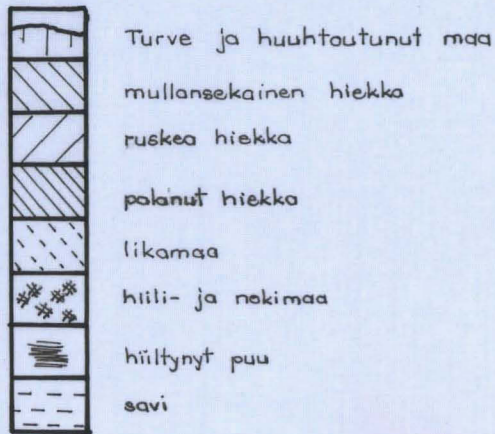 Turve ja huuhtoutunut maa
mullansekainen hiekka
ruskea hiekka
palanut hiekka
likamaa
hiili- ja nokimaa
hiiltynyt puu
savi